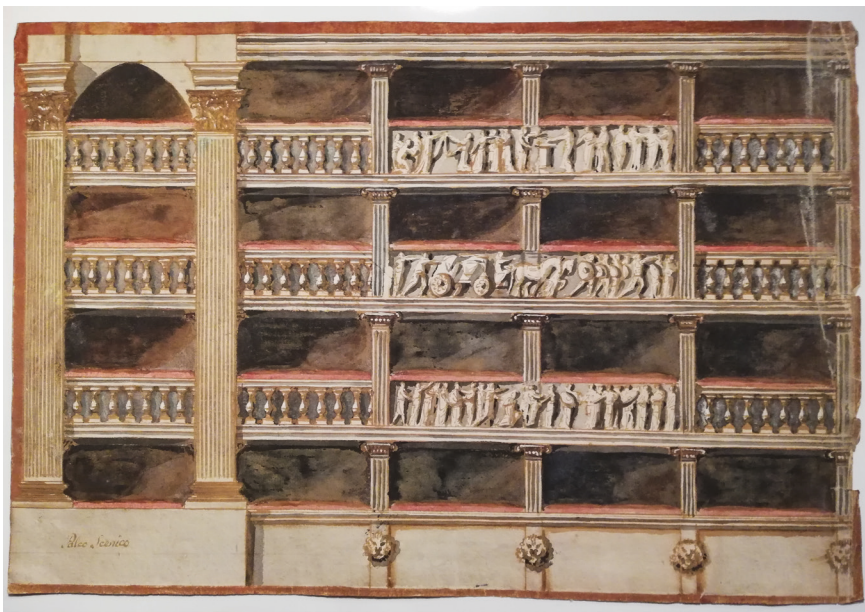 Palco Scenico